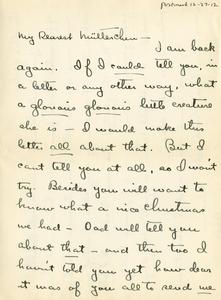 postmark 12-27-12
My Dearest Mütterchen -
I am back
again. If I could tell you, in
a letter or any other way, what
a glorious glorious little creature
she is - I would make this
letter all about that. But I
cant tell you at all, so I wont
try. Besides you will want to
know what a nice Christmas
we had - Dad will tell you
about that - and then too I
haven't told you yet how dear
it was of you all to send me